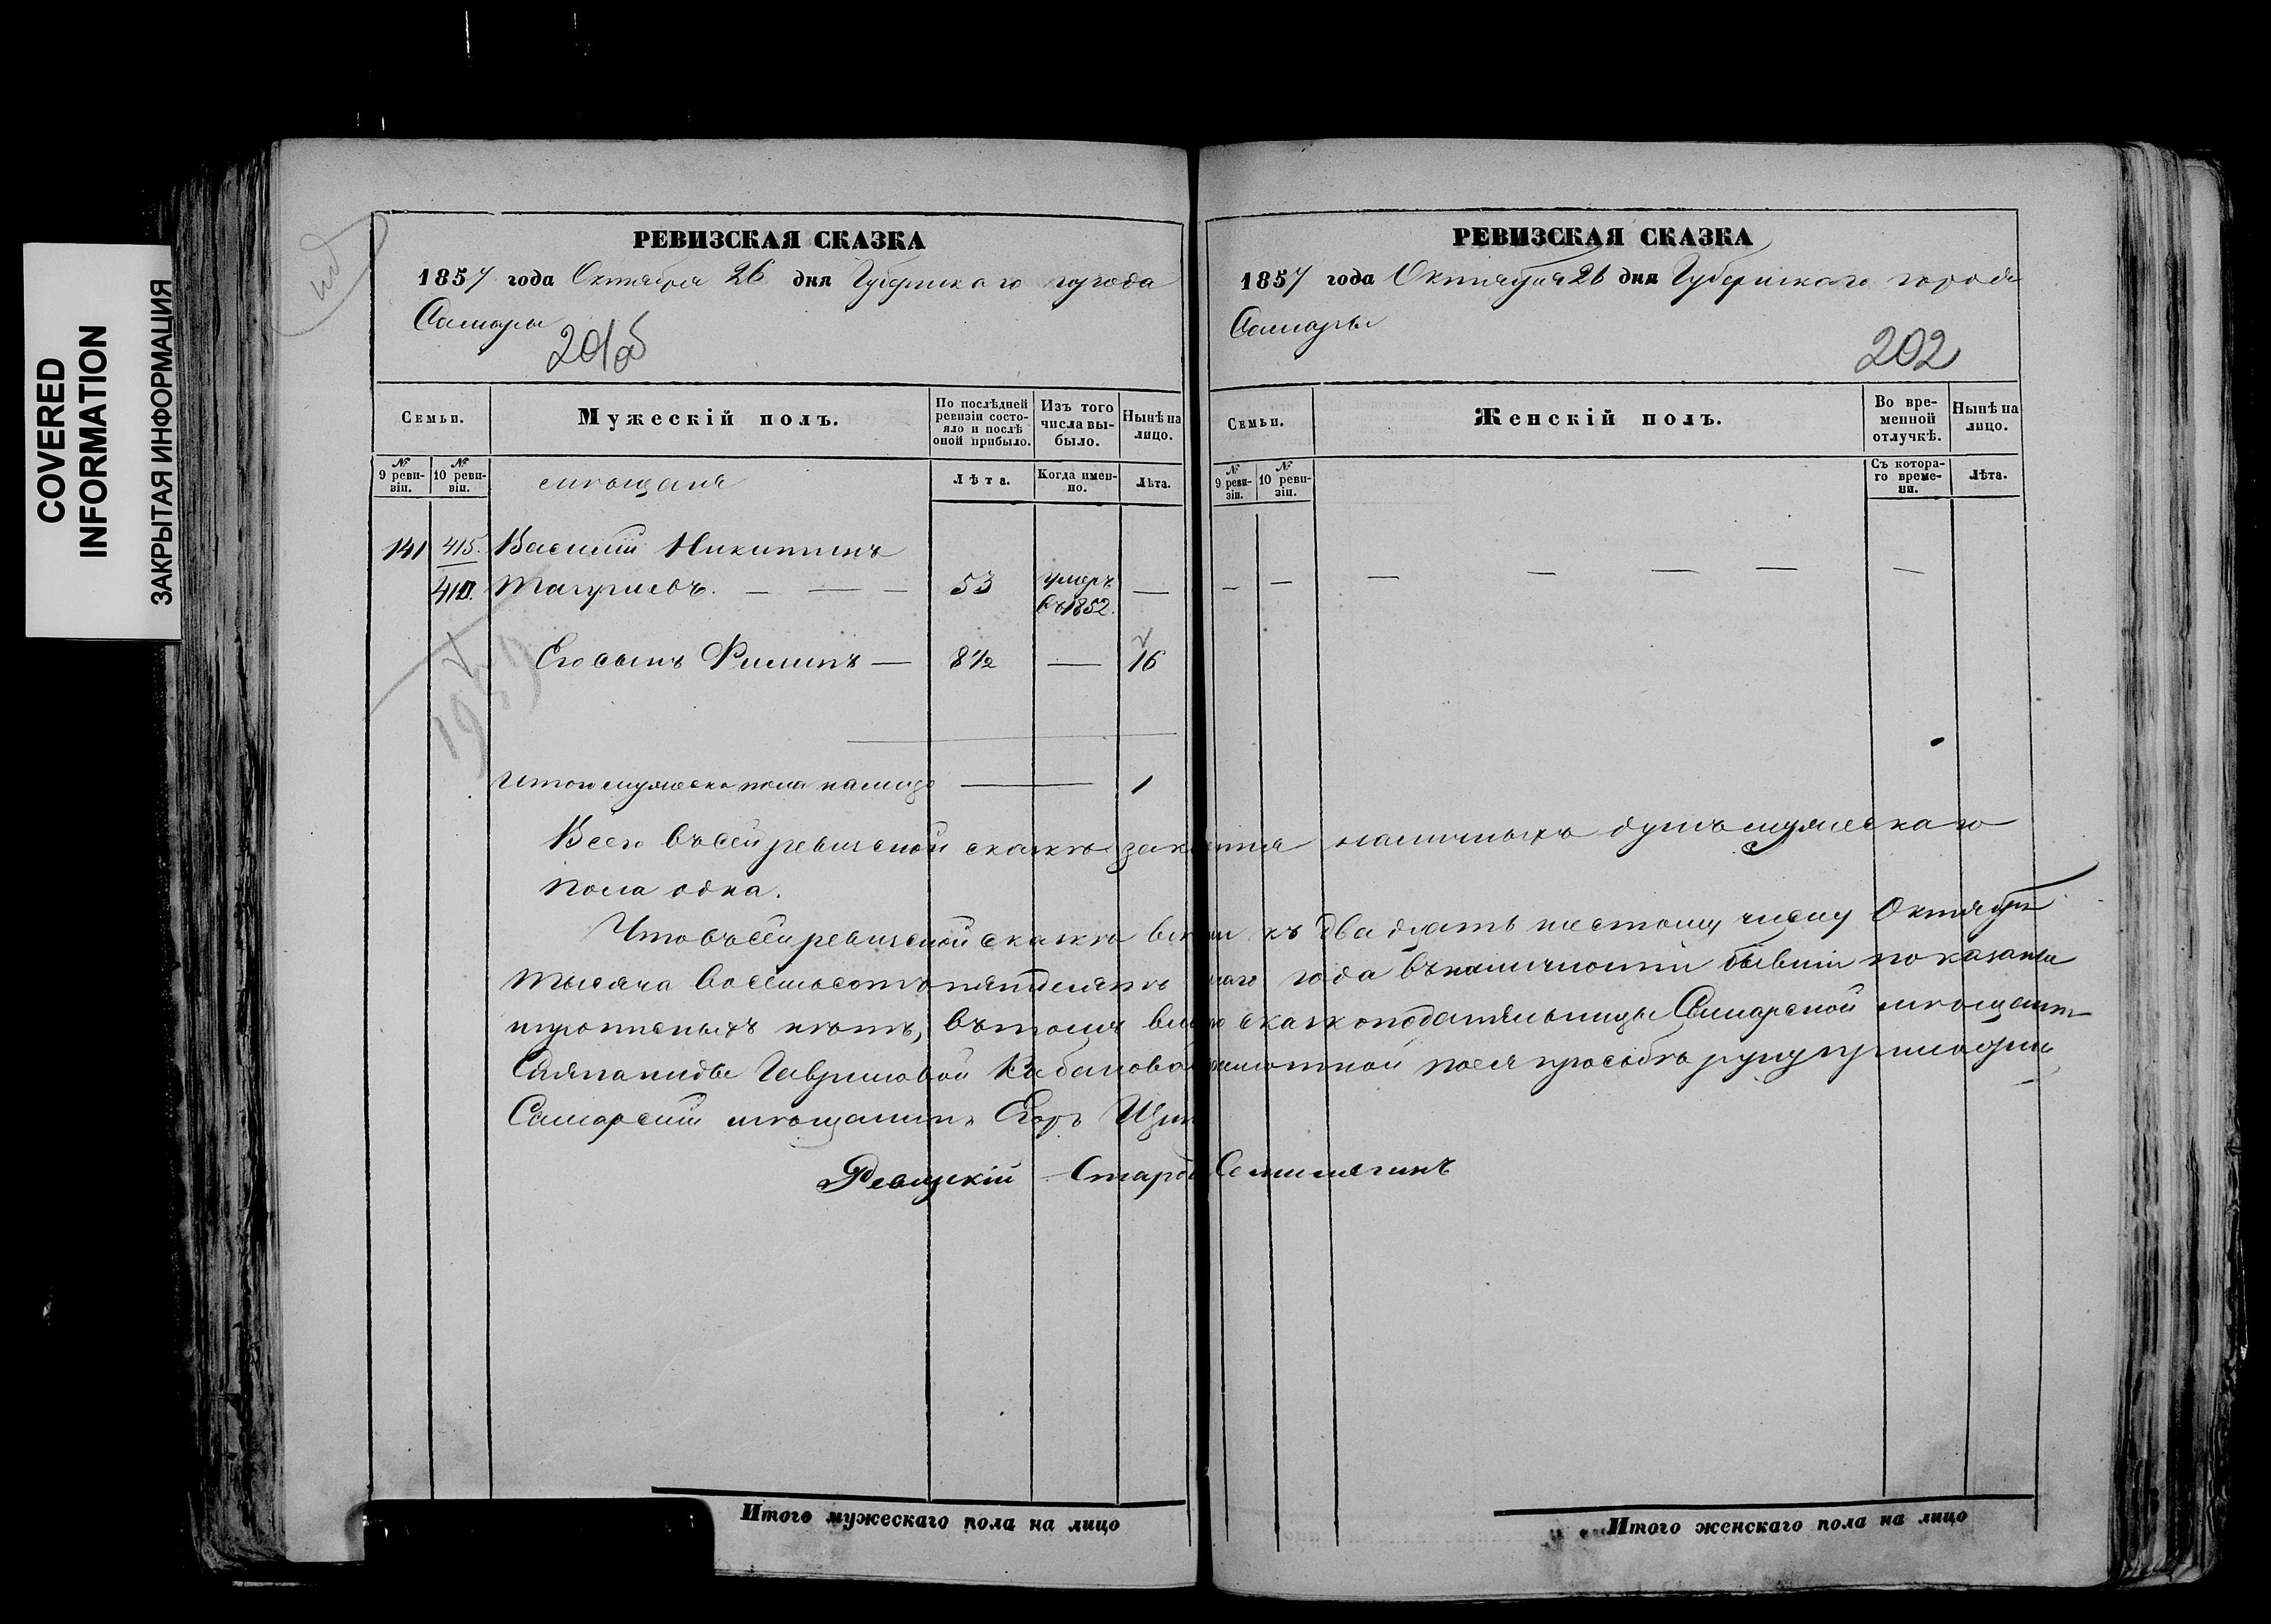 COVERED
INFORMATION
ЗАКРЫТАЯ ИНФОРМАЦИЯ
РЕВИЗСКАЯ СКАЗКА
1857 года Октября 26 дня Губернскаго города
Самары
201об
Семьи.
Мужескій полъ.
По послѣдней ревизіи состояло и послѣ оной прибыло.
Изъ того числа выбыло.
Нынѣ на лицо.
№ 9 ревизіи.
№ 10 ревизіи.
мѣщане
Лѣта.
Когда именно.
Лѣта.
141 415. Василий Никитинъ
53 умеръ —
въ 1852.
Его сынъ Филипъ — 8½ — 16
Итого мужеска пола налицо — 1
Всего въ сей ревизской сказкѣ
пола одна.
Что въ сей ревизской сказкѣ
тысяча восемьсотъ
прописныхъ нѣтъ, въ томъ
Гавриловой
Самарский мѣщанинъ Егоръ
Ревизскій
РЕВИЗСКАЯ СКАЗКА
1857 года Октября 26 дня Губернскаго города
Самары
202
Семьи.
Женскій полъ.
Во временной отлучкѣ.
Нынѣ на лицо.
№ 9 ревизіи.
№ 10 ревизіи.
Съ котораго времени.
Лѣта.
— — — — — — —
наличныхъ душъ мужескаго
къ двадцать шестому числу Октября
года въ наличности бывшіи показаны
сказкоподательницы Самарской
по ея прозьбѣ руку приложилъ
Итого мужескаго пола на лицо
Итого женскаго пола на лицо